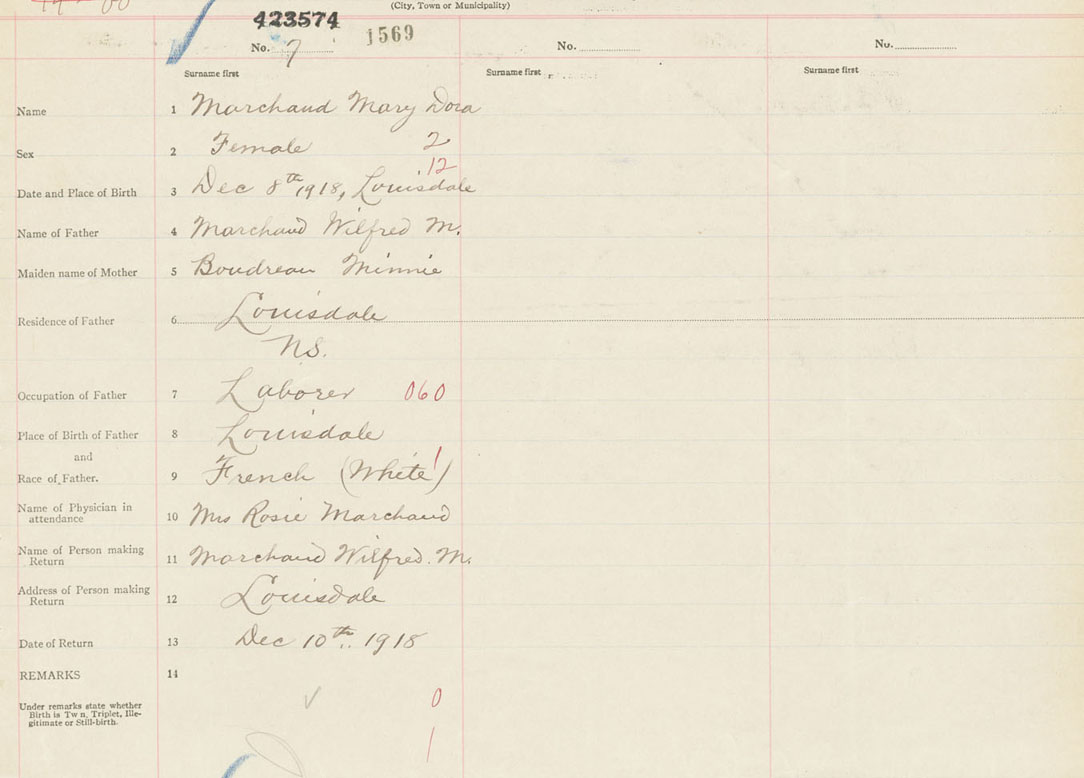 (City, Town or Municipality)
423574
No. 7 1569 No. No.
Surname first Surname first Surname first
Name 1 Marchand Mary Dora
Sex 2 Female 2
12
Date and Place of Birth 3 Dec 8th 1918, Louisdale
Name of Father 4 Marchand Wilfred M.
Maiden name of Mother 5 Boudreau Minnie
Residence of Father 6 Louisdale
N.S.
Occupation of Father 7 Laborer 060
Place of Birth of Father 8 Louisdale
and
Race of Father. 9 French (White) 1
Name of Physician in
attendance 10 Mrs Rosie Marchand
Name of Person making
Return 11 Marchand Wilfred. M.
Address of Person making
Return 12 Louisdale
Date of Return 13 Dec 10th. 1918
REMARKS 14
Under remarks state whether
Birth is Tw n, Triplet, Ille-
gitimate or Still-birth.
0
1